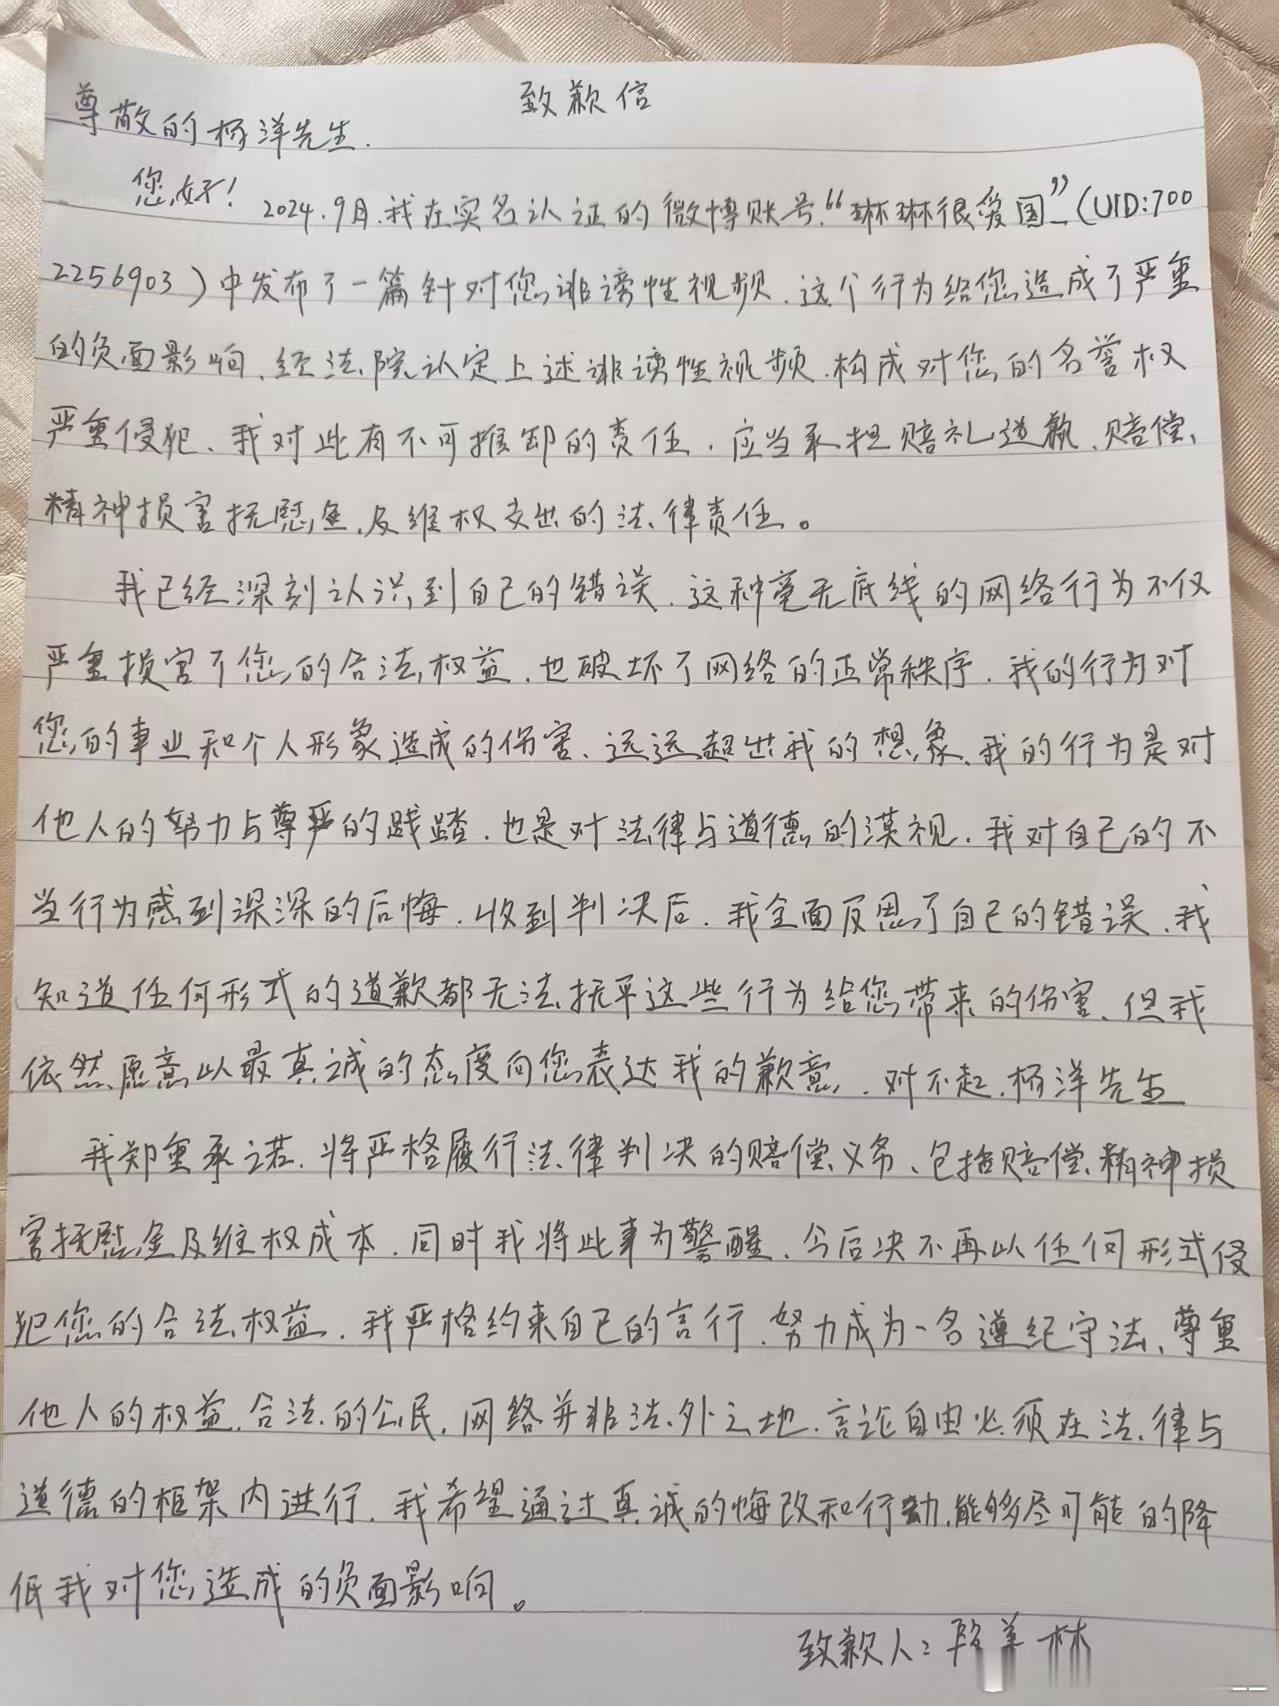 致歉信
尊敬的杨洋先生.
您好！2024.9月.我在实名认证的微博账号.“琳琳很爱国”(UID:700
2256903）中发布了一篇针对您诽谤性视频.这个行为给您造成了严重
的负面影响、经法院认定上述诽谤性视频.构成对您的名誉权
严重侵犯、我对此有不可推卸的责任.应当承担赔礼道歉、赔偿、
精神损害抚慰金及维权支出的法律责任。
我已经深刻认识到自己的错误.这种毫无底线的网络行为不仅
严重损害了您的合法权益.也破坏了网络的正常秩序.我的行为对
您的事业和个人形象造成的伤害、远远超出我的想象.我的行为是对
他人的努力与尊严的践踏.也是对法律与道德的漠视.我对自己的不
当行为感到深深的后悔.收到判决后.我全面反思了自己的错误.我
知道任何形式的道歉都无法抚平这些行为给您带来的伤害、但我
依然愿意以最真诚的态度向您表达我的歉意.对不起.杨洋先生
我郑重承诺.将严格履行法律判决的赔偿义务、包括赔偿、精神损
害抚慰金及维权成本.同时我将此事为警醒、今后决不再以任何形式侵
犯您的合法权益.我严格约束自己的言行.努力成为一名遵纪守法、尊重
他人的权益.合法的公民.网络并非法外之地.言论自由必须在法律与
道德的框架内进行.我希望通过真诚的悔改和行动.能够尽可能的降
低我对您造成的负面影响。
致歉人：段 林